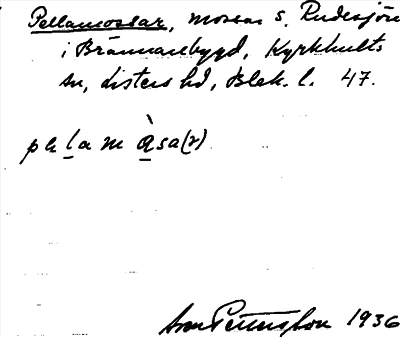 Pellamossar, mossar s. Rudesjön
i Brännarebygd, Kyrkhults
sn, Listers hd, Blek. l. 47.
pelamàsa(r)
Sven Pettersson 1936